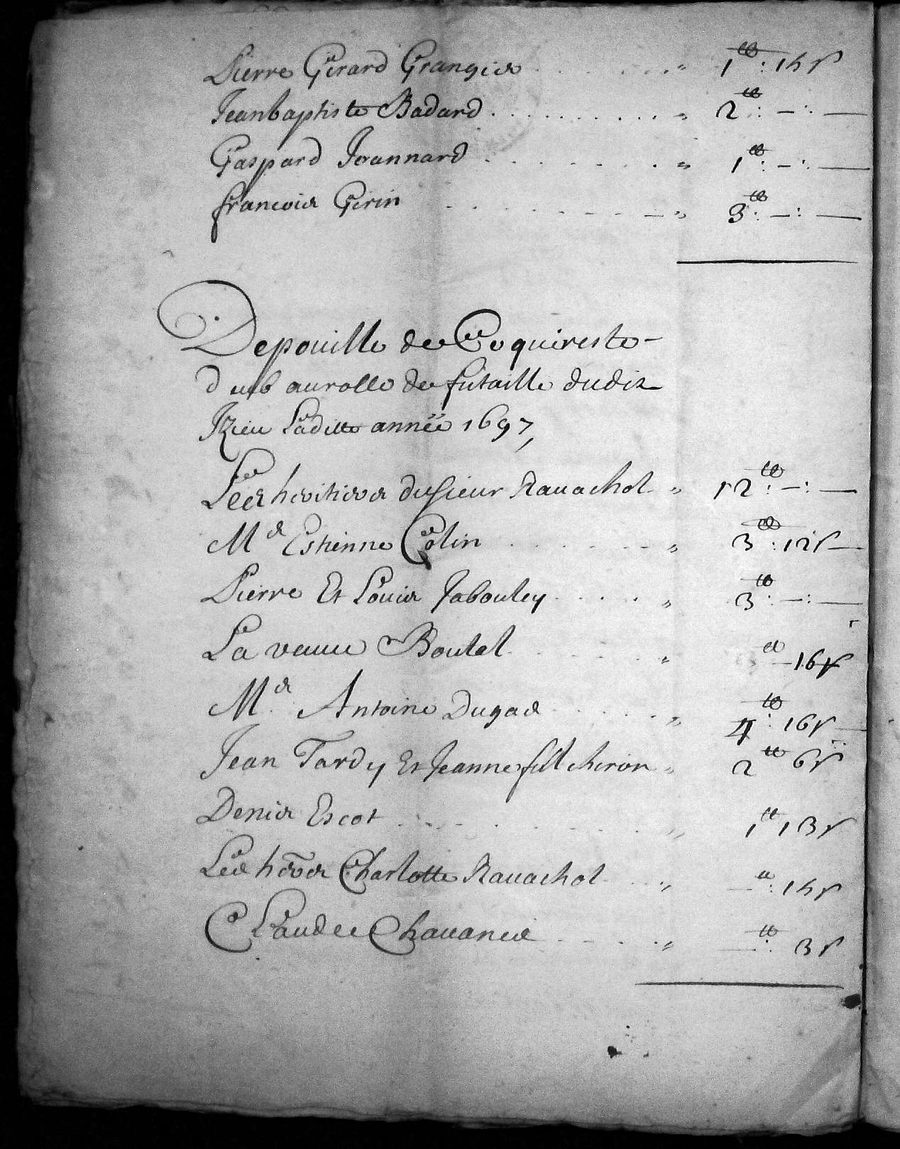 Pierre Gerard Grangier . . . . . . " 1 ₶ : 15 s
Jean baptiste Badard . . . . . . " 2 ₶ : — : —
Gaspard Joannard . . . . . . " 1 ₶ : — : —
francois Gerin . . . . . . " 3 ₶ : — : —
Depouille de Ce qui reste
dub au rolle de futaille dudit
Izieu Laditte année 1697
Les heritiers du sieur Rauachol " 12 ₶ : — : —
Mr Estienne Colin . . . . . . " 3 ₶ : 12 s —
Pierre Et Louis Jabouley . . . . " 3 ₶ : — : —
La veuue Boutet . . . . . . " ₶ — 16 s
Mr Antoine Dugas . . . . . . " 4 ₶ : 16 s —
Jean Tardy Et Jeanne fill Chiron " 2 ₶ 6 s
Denis Escot . . . . . . " 1 ₶ 13 s
Les hers Charlotte Rauachol . . " — ₶ : 15 s
Claude Chauanes . . . . . . " — ₶ : 3 s